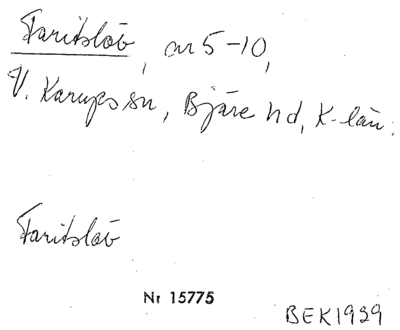 Faritslöv, nr 5-10,
V. Karups sn, Bjäre hd, K-län.
Faritslöv
Nr 15775
BEK1929